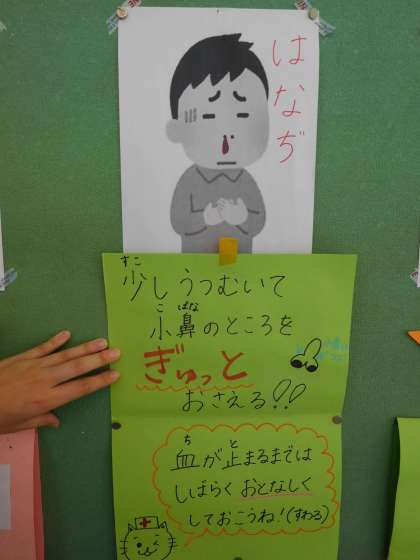 はなぢ
少しうつむいて
小鼻のところを
ぎゅっと
おさえる!!
血が止まるまでは
しばらくおとなしく
しておこうね!(すわる)